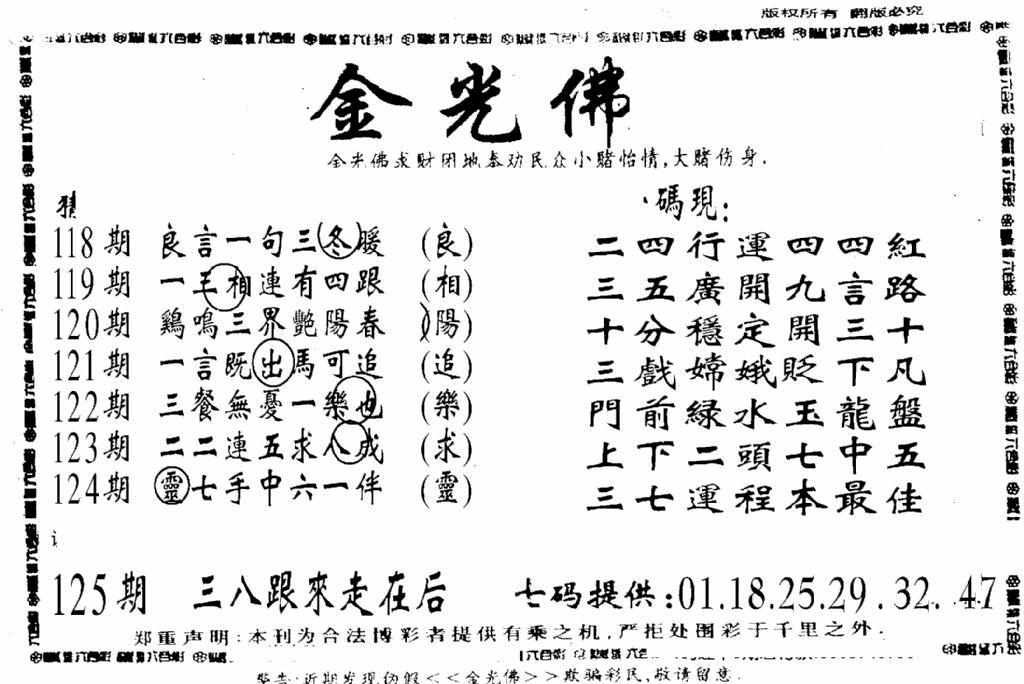 版权所有 翻版必究
金光佛
金光佛求财团地奉劝民众小赌怡情,大赌伤身.
猜
118期 良言一句三冬暖 (良)
119期 一王相連有四跟 (相)
120期 鷄鳴三界艷陽春 (陽)
121期 一言既出馬可追 (追)
122期 三餐無憂一樂也 (樂)
123期 二二連五求八成 (求)
124期 靈七手中六一伴 (靈)
碼現:
二四行運四四紅
三五廣開九言路
十分穩定開三十
三戲嫦娥貶下凡
門前緑水玉龍盤
上下二頭七中五
三七運程本最佳
125期 三八跟來走在后 七码提供:01.18.25.29.32.47
郑重声明:本刊为合法博彩者提供有乘之机,严拒处围彩于千里之外.
警告:近期发现伪假<<金光佛>>欺骗彩民,敬请留意.